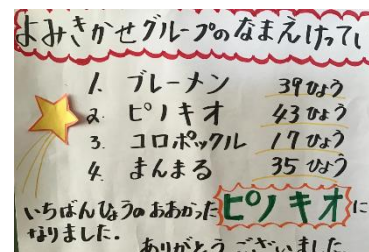 よみきかせグループのなまえけってい
1. ブレーメン 39ひょう
2. ピノキオ 43ひょう
3. コロポックル 17ひょう
4. まんまる 35ひょう
いちばんひょうのおおかったピノキオに
なりました.
ありがとうございました